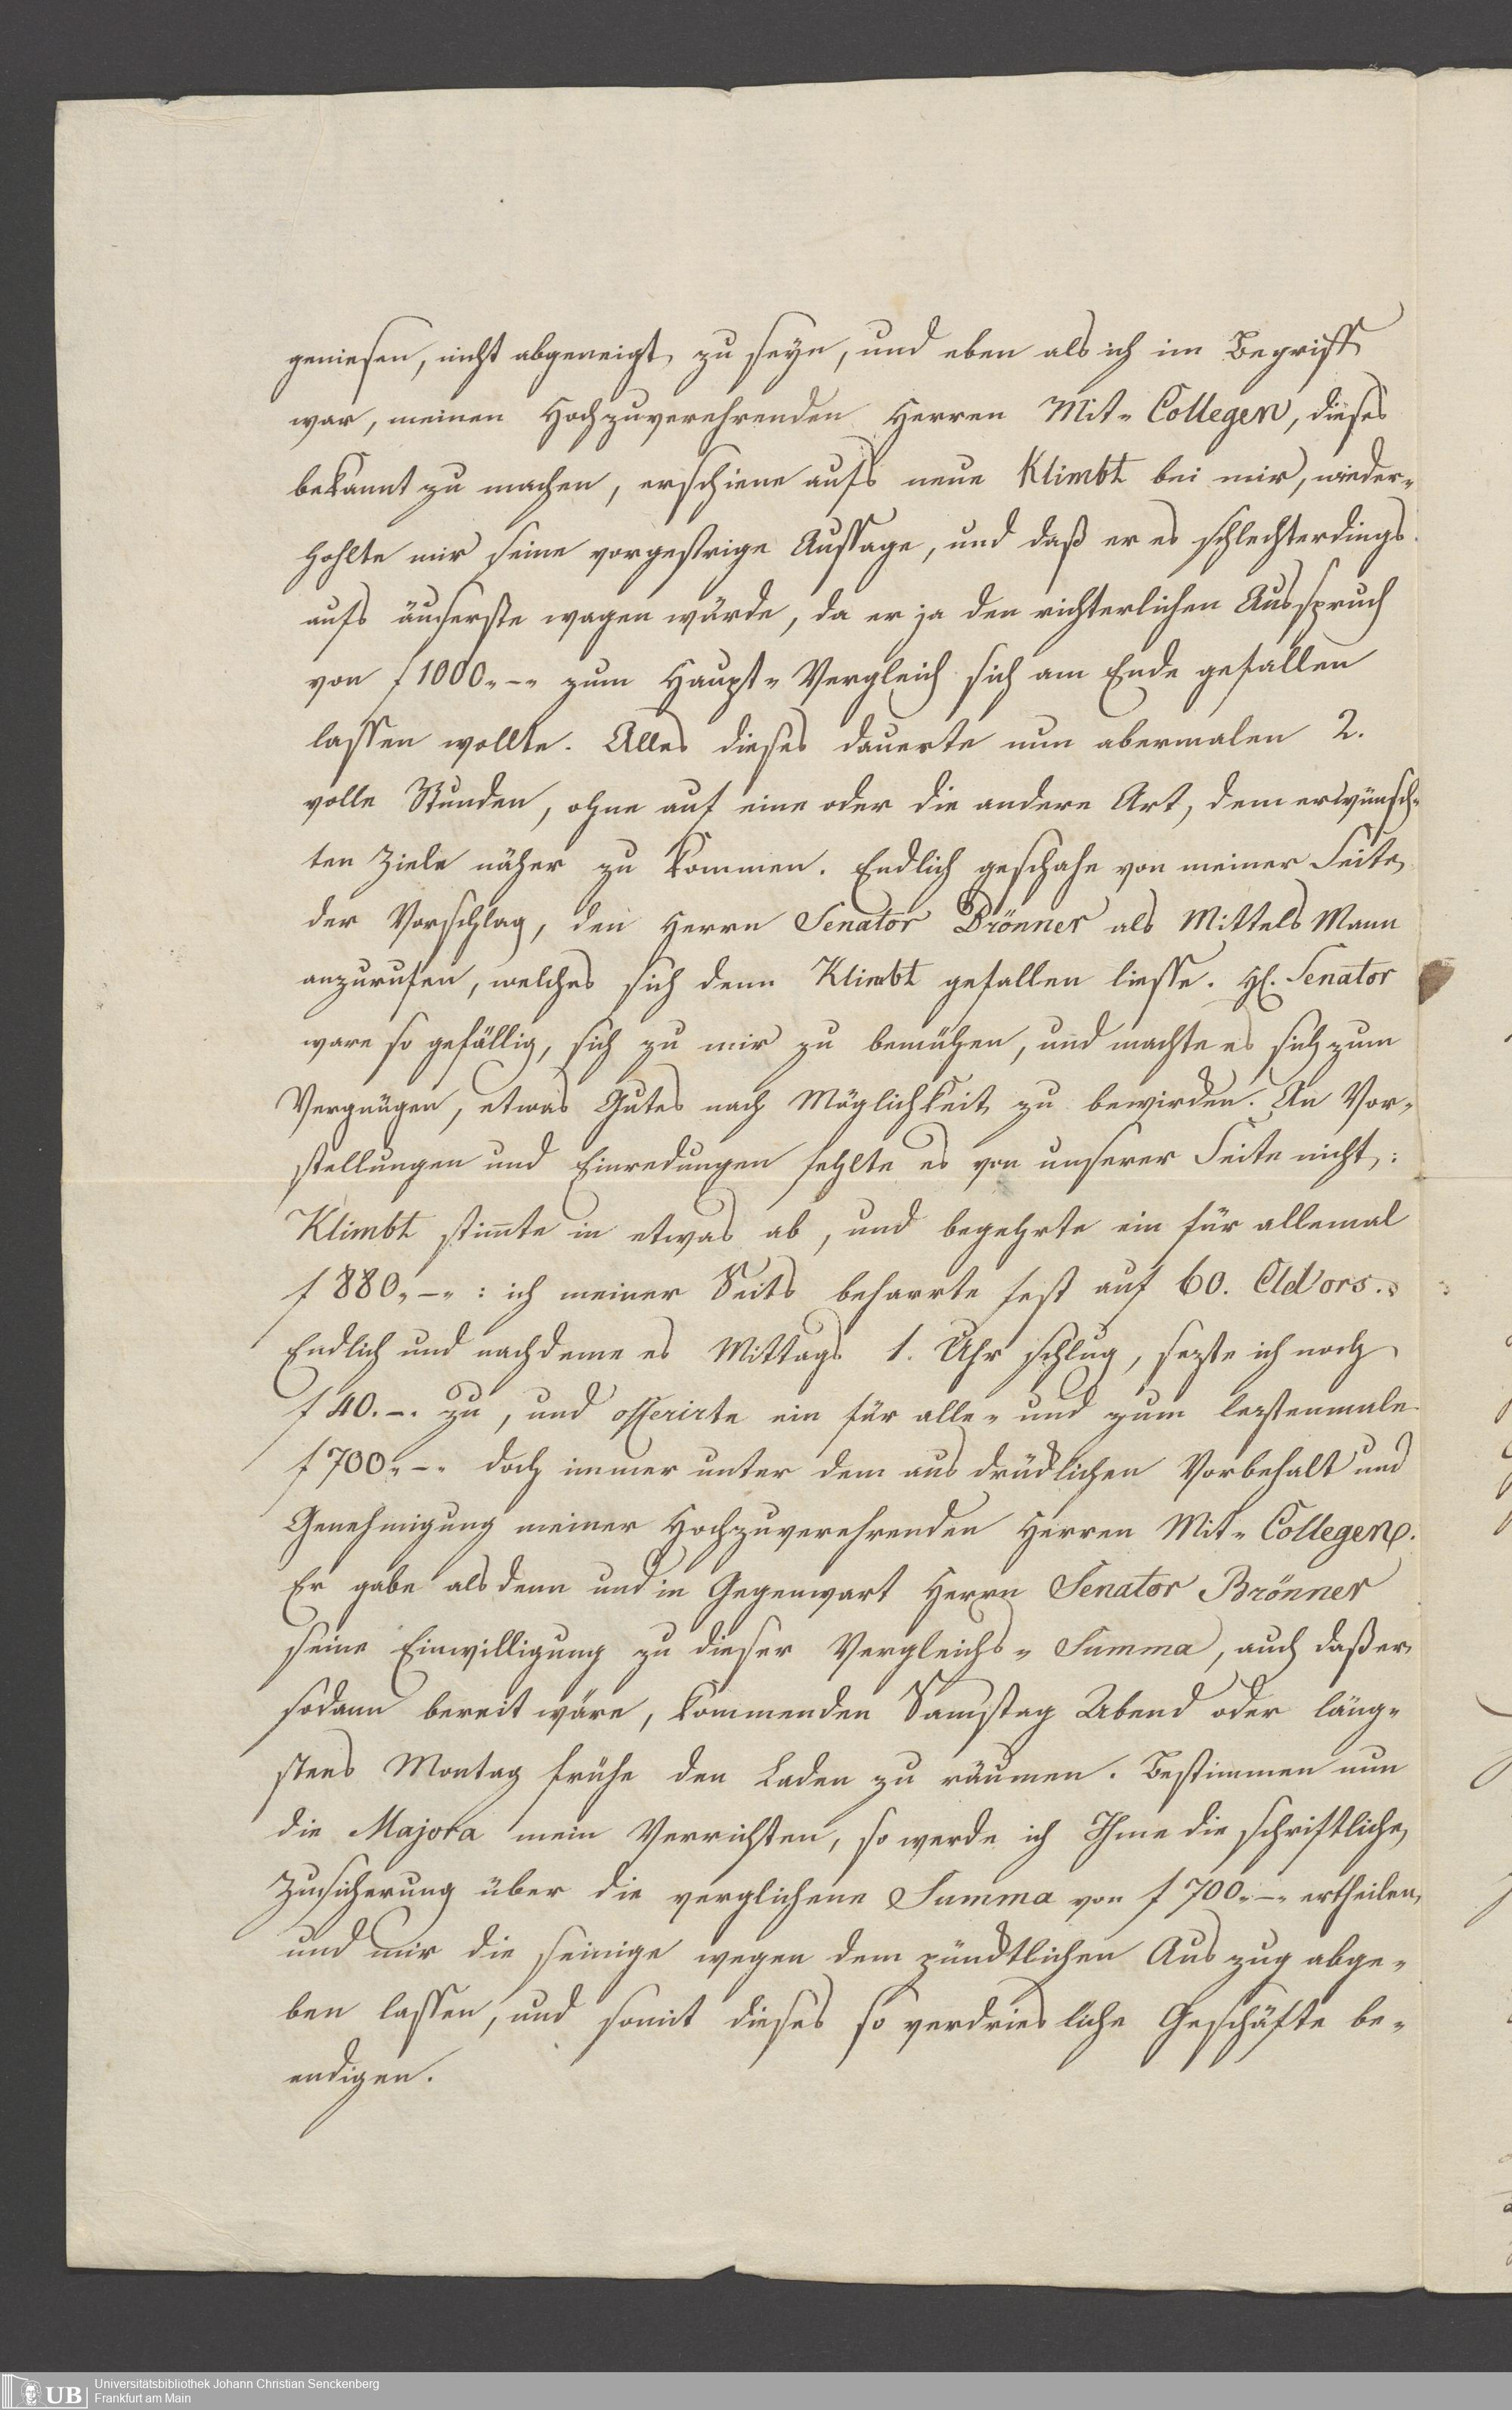 geniesen, nicht abgeneigt zu seyn, und eben als ich im Begriff
war, meinen Hochzuverehrenden Herren Mit-Collegen, dieses
bekannt zu machen, erschiene aufs neue Klimbt bei mir, wieder-
hohlte mir seine vorgestrige Aussage, und daß er es schlechterdings
aufs äuserste wagen würde, da er ja den richterlichen Ausspruch
von f 1000.-. zum Haupt-Vergleich sich am Ende gefallen
lassen wollte. Alles dieses dauerte nun abermalen 2.
volle Stunden, ohne auf eine oder die andere Art, dem erwünsch-
ten Ziele näher zu kommen. Endlich geschahe von meiner Seite
der Vorschlag, den Herrn Senator Brönner als Mittels Mann
anzurufen, welches sich denn Klimbt gefallen liesse. H. Senator
ware so gefällig, sich zu mir zu bemühen, und machte es sich zum
Vergnügen, etwas Gutes nach Möglichkeit zu bewirken. An Vor-
stellungen und Einredungen fehlte es von unserer Seite nicht:
Klimbt stimte in etwas ab, und begehrte ein für allemal
f 880.-. : ich meiner Seits beharrte fest auf 60.
Endlich und nachdeme es Mittags 1. Uhr schlug, sezte ich noch
f 40.-. zu, und offerirte ein für alle- und zum leztenmale
f 700.-. doch immer unter dem ausdrücklichen Vorbehalt und
Genehmigung meiner Hochzuverehrenden Herren Mit-Collegen.
Er gabe alsdenn und in Gegenwart Herrn Senator Brönner
seine Einwilligung zu dieser Vergleichs-Summa, auch daß er
sodann bereit wäre, kommenden Samstag Abend oder läng-
stens Montag frühe den Laden zu räumen. Bestimmen nun
die Majora mein Verrichten, so werde ich Ihme die schriftliche
Zusicherung über die verglichene Summa von f 700.-. ertheilen,
und mir die seinige wegen dem pünktlichen Auszug abge-
ben lassen, und somit dieses so verdriesliche Geschäfte be-
endigen.
UB
Universitätsbibliothek Johann Christian Senckenberg
Frankfurt am Main